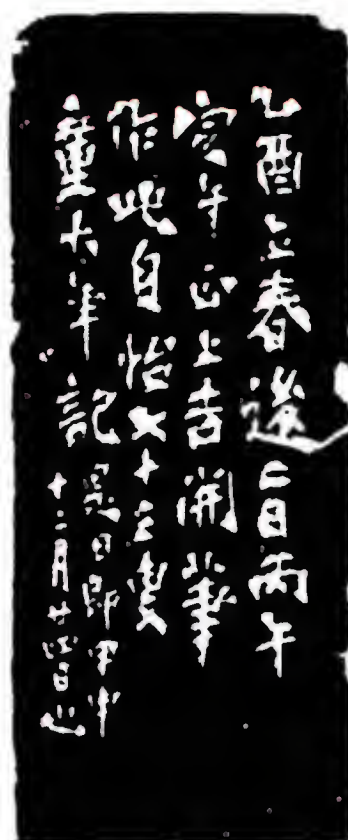 乙酉立春後二日丙午
寅午正上吉開筆
作此自怡七十三叟
童大年記
是日即甲申
十二月廿四日也